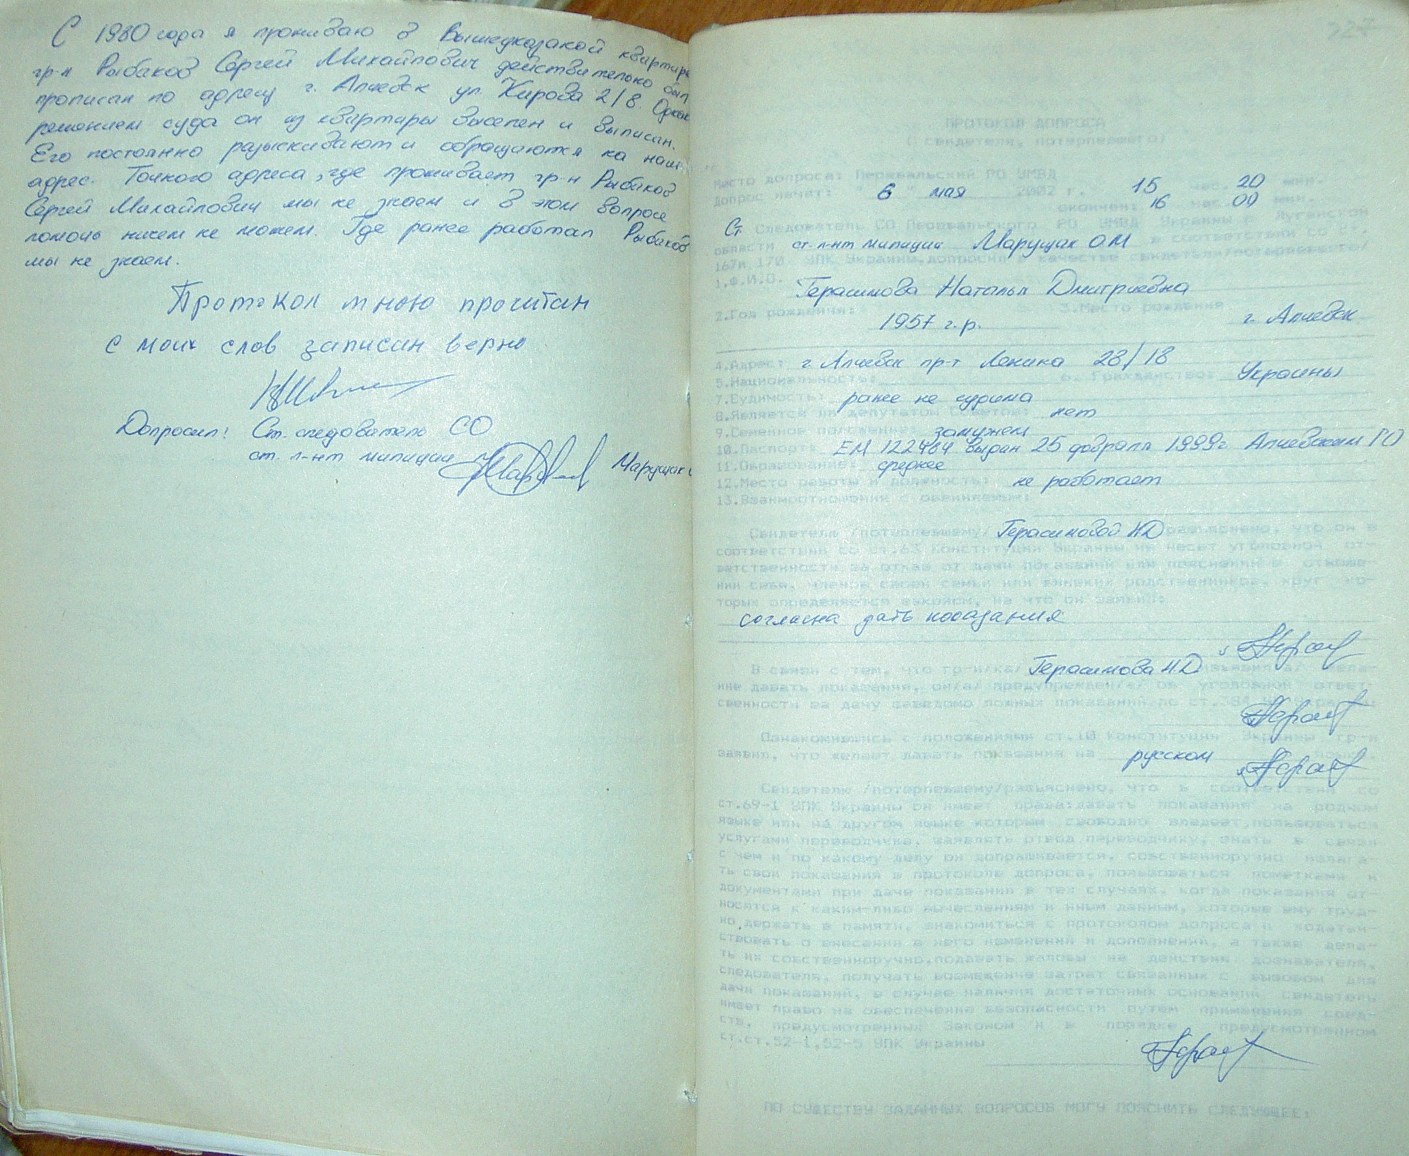 С 1980 года я проживаю в вышеуказаной квартире
гр-н Рыбаков Сергей Михайлович действительно был
прописан по адресу г. Алчевск ул. Кирова 2/8. Однак
решением суда он из квартиры выселен и выписан.
Его постоянно разыскивают и обращаются на наш
адрес. Точного адреса, где проживает гр-н Рыбаков
Сергей Михайлович мы не знаем и в этом вопросе
помочь ничем не можем. Где ранее работал Рыбаков
мы не знаем.
Протокол мною прочитан
с моих слов записан верно
Допросил: Ст. следователь СО
ст. л-нт милиции Марущак
327
ПРОТОКОЛ ДОПРОСА
( свидетеля, потерпевшего)
Место допроса: Перевальский РО УМВД
Допрос начат: "6" мая 2002 г. 15 час. 20 мин.
окончен: 16 час. 00 мин.
Ст Следователь СО Перевальского РО УМВД Украины в Луганской
области ст. л-нт милиции Марущак ОМ в соответствии со ст.
167и 170 УПК Украины,допросил в качестве свидетеля/потерпевшего/
1.Ф.И.О. Герасимова Наталья Дмитриевна
2.Год рождения: 1957 г.р. 3.Место рождения г. Алчевск
4.Адрес: г Алчевск пр-т Ленина 28/18
5.Национальность: 6. Гражданство: Украины
7.Судимость: ранее не судима
8.Является ли депутатом Советов: нет
9.Семейное положение: замужем
10.Паспорт: ЕМ 122484 выдан 25 февраля 1999г Алчевским ГО
11.Образование: среднее
12.Место работы и должность: не работает
13.Взаимоотношения с обвиняемым:
Свидетелю /потерпевшему/ Герасимовой НД разъяснено, что он в
соответствии со ст.63 Конституции Украины не несет уголовной от-
ветственности за отказ от дачи показаний или пояснений в отноше-
нии себя, членов своей семьи или близких родственников, круг ко-
торых определяется законом, на что он заявил:
согласна дать показания
В связи с тем, что гр-н/ка/ Герасимова НД изъявил/а/ жела-
ние давать показания, он/а/ предупрежден/а/ об уголовной ответ-
ственности за дачу заведомо ложных показаний по ст.384
Ознакомившись с положениями ст.10 Конституции Украины гр-н
заявил, что желает давать показания на русском
Свидетелю /потерпевшему/разъяснено, что в соответствии со
ст.69-1 УПК Украины он имеет право:давать показания на родном
языке или на другом языке которым свободно владеет,пользоваться
услугами переводчика, заявлять отвод переводчику, знать в связи
с чем и по какому делу он допрашивается, собственноручно излага-
ть свои показания в протоколе допроса, пользоваться пометками и
документами при даче показаний в тех случаях, когда показания от-
носятся к каким-либо вычислениям и иным данным, которые ему труд-
но держать в памяти, знакомиться с протоколом допроса и ходатай-
ствовать о внесении в него изменений и дополнений, а также дела-
ть их собственноручно,подавать жалобы на действия дознавателя,
следователя, получать возмещение затрат связанных с вызовом для
дачи показаний, в случае наличия достаточных оснований свидетель
имеет право на обеспечение безопасности путем применения сред-
ств, предусмотренных Законом и в порядке предусмотренном
ст.ст.52-1,52-5 УПК Украины
ПО СУЩЕСТВУ ЗАДАННЫХ ВОПРОСОВ МОГУ ПОЯСНИТЬ СЛЕДУЮЩЕЕ: